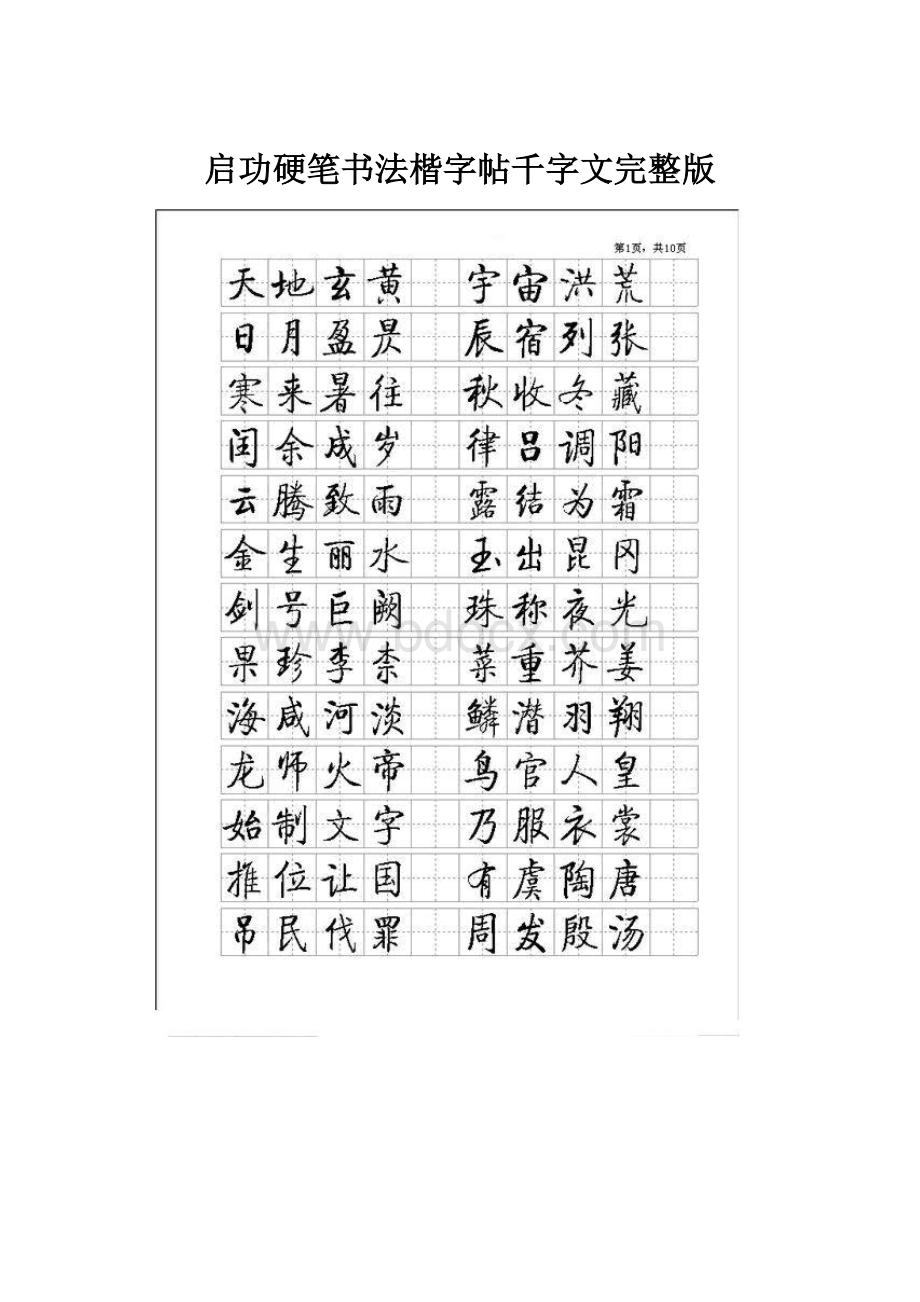 启功硬笔书法楷字帖千字文完整版
第1页，共10页
天地玄黄 宇宙洪荒
日月盈昃 辰宿列张
寒来暑往 秋收冬藏
闰余成岁 律吕调阳
云腾致雨 露结为霜
金生丽水 玉出昆冈
剑号巨阙 珠称夜光
www.bdocx.com
果珍李柰 菜重芥姜
海咸河淡 鳞潜羽翔
龙师火帝 鸟官人皇
始制文字 乃服衣裳
推位让国 有虞陶唐
吊民伐罪 周发殷汤